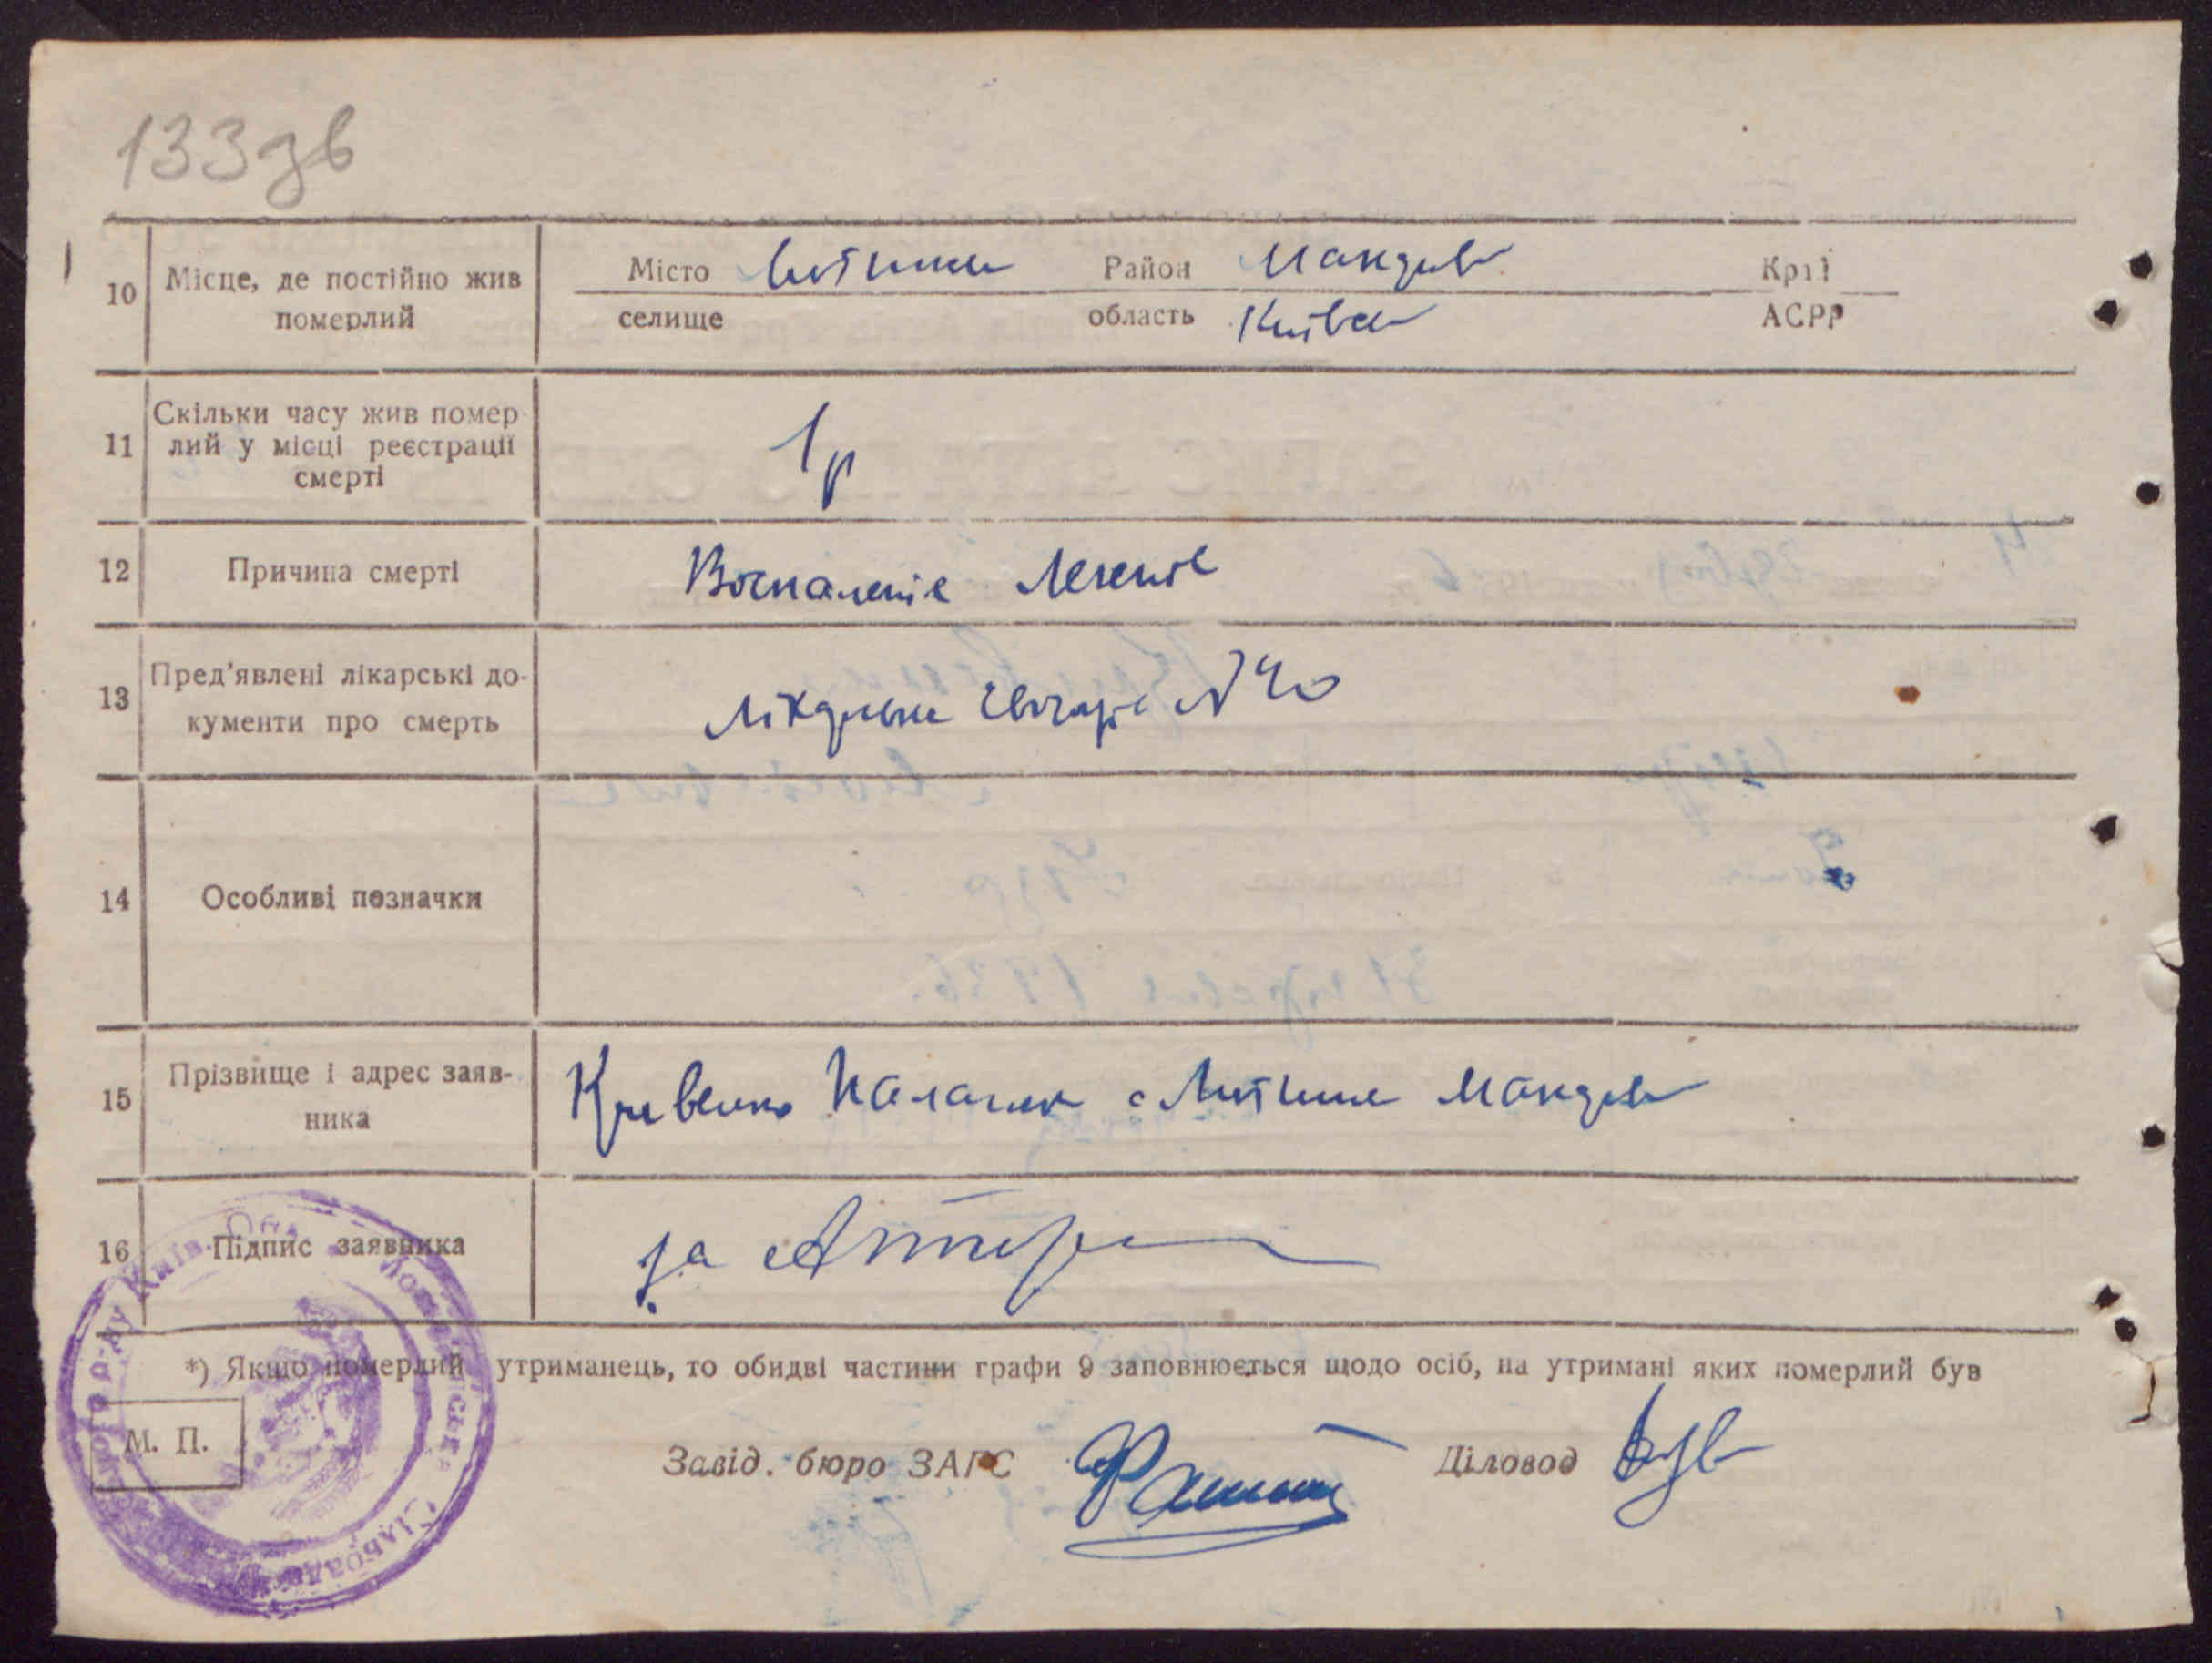 133зв
10 Місце, де постійно жив Місто Район Макарів Край
померлий селище область Київсь АСРР
11 Скільки часу жив помер
лий у місці реєстрації 1р
смерті
12 Причина смерті Воспаленіе Легеніе
13 Пред'явлені лікарські до-
кументи про смерть Лікарська №40
14 Особливі позначки
15 Прізвище і адрес заяв-
ника Кривенко с Макарів
16 Підпис заявника за
*) Якщо померлий утриманець, то обидві частини графи 9 заповнюється щодо осіб, на утримані яких померлий був
М. П.
Завід. бюро ЗАГС Діловод
Сільрада